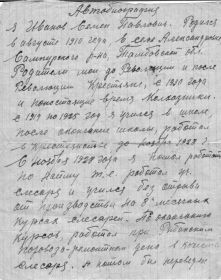 Автобиография
Я Иванов Семен Павлович. Родился
в августе 1910 года. В селе Александровка
Сампурского р-на, Тамбовской обл.
Родители мои до Революции и после
Революции Крестьяне, с 1930 года
и по настоящее время Колхозники.
С 1919 по 1925 год я учился в школе
После окончания школы, работал
в крестьянстве до ноября 1928 г
С ноября 1928 года я пошел работать
по найму ж.д. работал уч.
слесаря и учился без отрыва
от производства на 8 месячных
курсах слесарей. По окончании
курсов работал при Ртищевском
паровозо-ремонтном депо в
слесаря. А потом был переведен